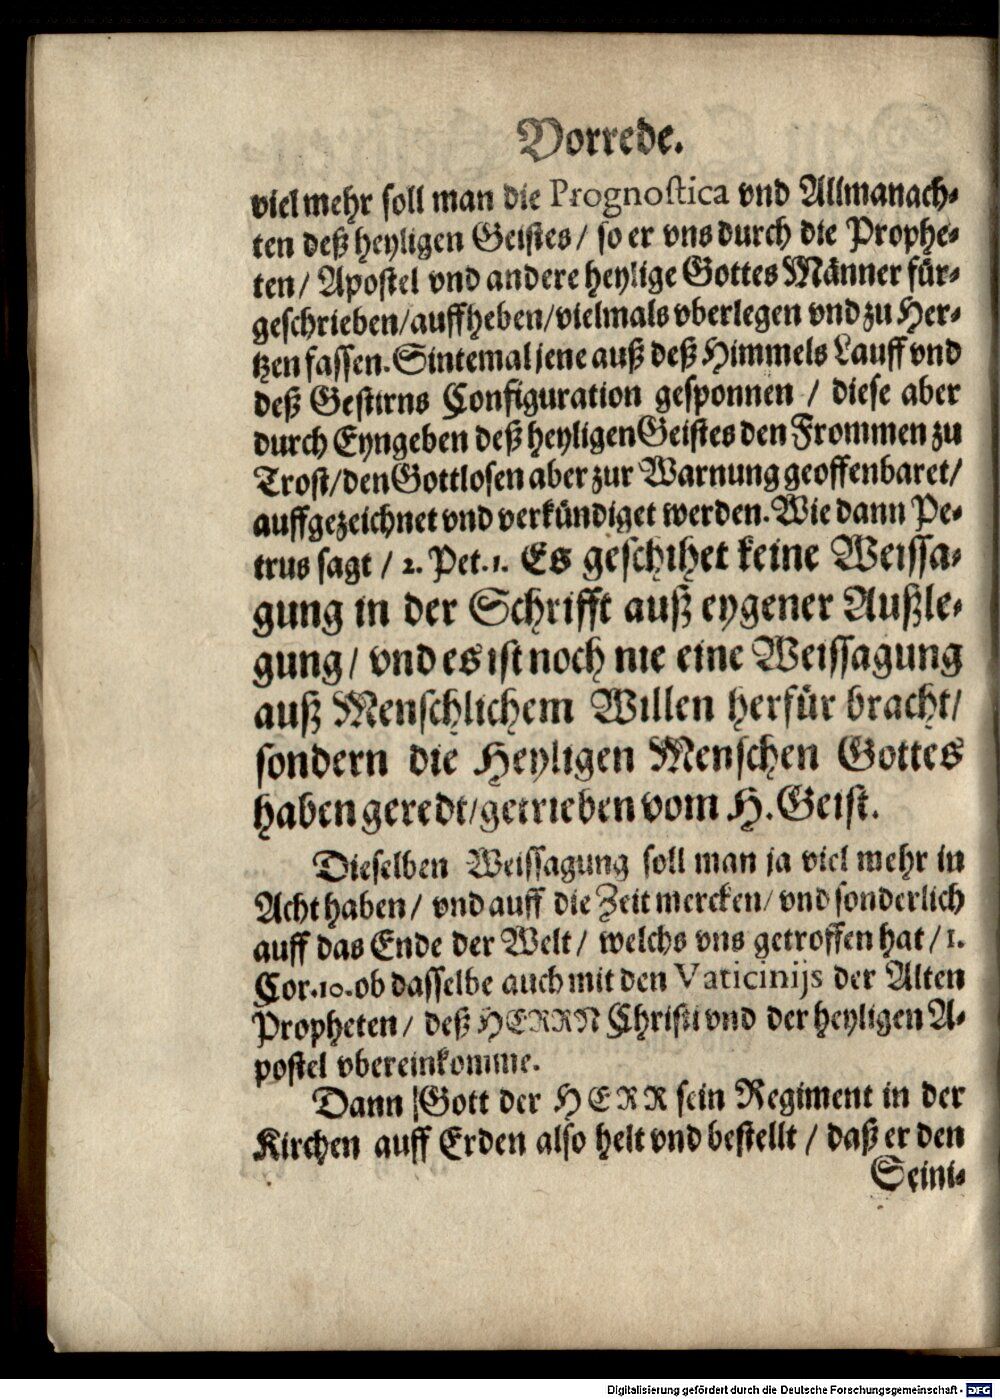 Vorrede.
viel mehr soll man die Prognostica vnd Allmanach-
ten deß heyligen Geistes / so er vns durch die Prophe-
ten / Apostel vnd andere heylige Gottes Männer für-
geschrieben / auffheben / vielmals vberlegen vnd zu Her-
tzen fassen. Sintemal jene auß deß Himmels Lauff vnd
deß Gestirns Configuration gesponnen / diese aber
durch Eyngeben deß heyligen Geistes den Frommen zu
Trost / den Gottlosen aber zur Warnung geoffenbaret /
auffgezeichnet vnd verkündiget werden. Wie dann Pe-
trus sagt / 2. Pet. 1. Es geschihet keine Weissa-
gung in der Schrifft auß eygener Außle-
gung / vnd es ist noch nie eine Weissagung
auß Menschlichem Willen herfür bracht /
sondern die Heyligen Menschen Gottes
haben geredt / getrieben vom H. Geist.
Dieselben Weissagung soll man ja viel mehr in
Acht haben / vnd auff die Zeit mercken / vnd sonderlich
auff das Ende der Welt / welchs vns getroffen hat / 1.
Cor. 10. ob dasselbe auch mit den Vaticinijs der Alten
Propheten / deß HERRN Christi vnd der heyligen A-
postel vbereinkomme.
Dann Gott der HERR sein Regiment in der
Kirchen auff Erden also helt vnd bestellt / daß er den
Seini-
Digitalisierung gefördert durch die Deutsche Forschungsgemeinschaft - DFG